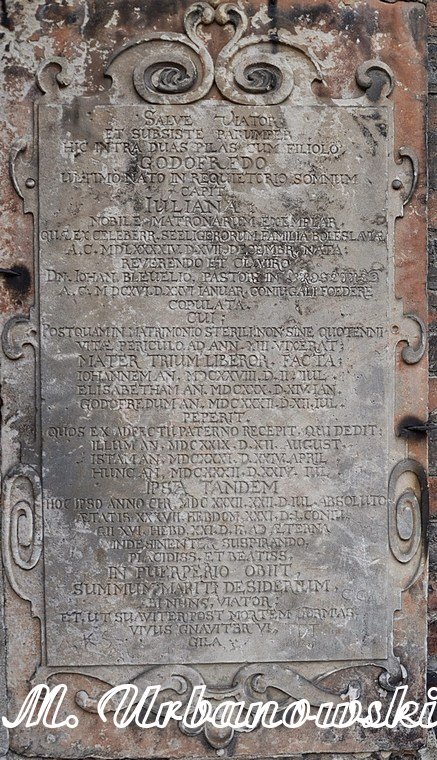 SALVE VIATOR
ET SUBSISTE PARUMPER
HIC INTRA DUAS PILAS CUM FILIOLO
GODOFREDO
ULTIMO NATO IN REQUIETORIO SOMNUM
CAPIT
IULIANA
NOBILE MATRONARUM EXEMPLAR
QUÆ EX CELEBERR. SEELIGERORUM FAMILIA BOLESLAVIÆ
A.C. MDLXXXXIV. D. XVII. DECEMBR. NATA;
REVERENDO ET CLARIRO
DN. IOHAN. PASTORI IN
A.C. MDCXVI. D. XVI IANUAR. CONIUGALI FOEDERE
COPULATA.
CUI
POSTQUAM IN MATRIMONIO STERILI, NON SINE QUOTENNI
VITÆ PERICULO AD ANN. XIII VIXERAT;
MATER TRIUM LIBEROR. FACTA;
IOHANNEM AN. MDCXXVIII. D. II. IUL.
ELISABETHAM AN. MDCXXX. D. XIV. IAN.
GODOFREDUM AN. MDCXXXII. D. XII. IUL.
PEPERIT.
QUOS EX ADFECTU PATERNO RECEPIT, QUI DEDIT;
ILLUM AN. MDCXXIX. D. XII. AUGUST.
ISTAM AN. MDCXXXI. D. XXIV. APRIL
HUNC AN. MDCXXXII. D. XXIV. IUL.
IPSA TANDEM
HOC IPSO ANNO CHR. MDCXXXII. XXII. D. IUL. ABSOLUTO
ÆTATIS XXXVII. HEBDOM. XXXI. D. I. CONIU
GII XVI. HEBD. XXVI. D. II. AD ÆTERNA
INDESINENTER SUSPIRANDO
PLACIDISS. ET BEATISS.
IN PUERPERIO OBIIT,
SUMMUM MARITI DESIDERIUM,
EI NUNC, VIATOR;
ET, UT SUAVITER POST MORTEM DORMIAS,
VIVUS GNAVITER VI
GILA
M. Urbanowski